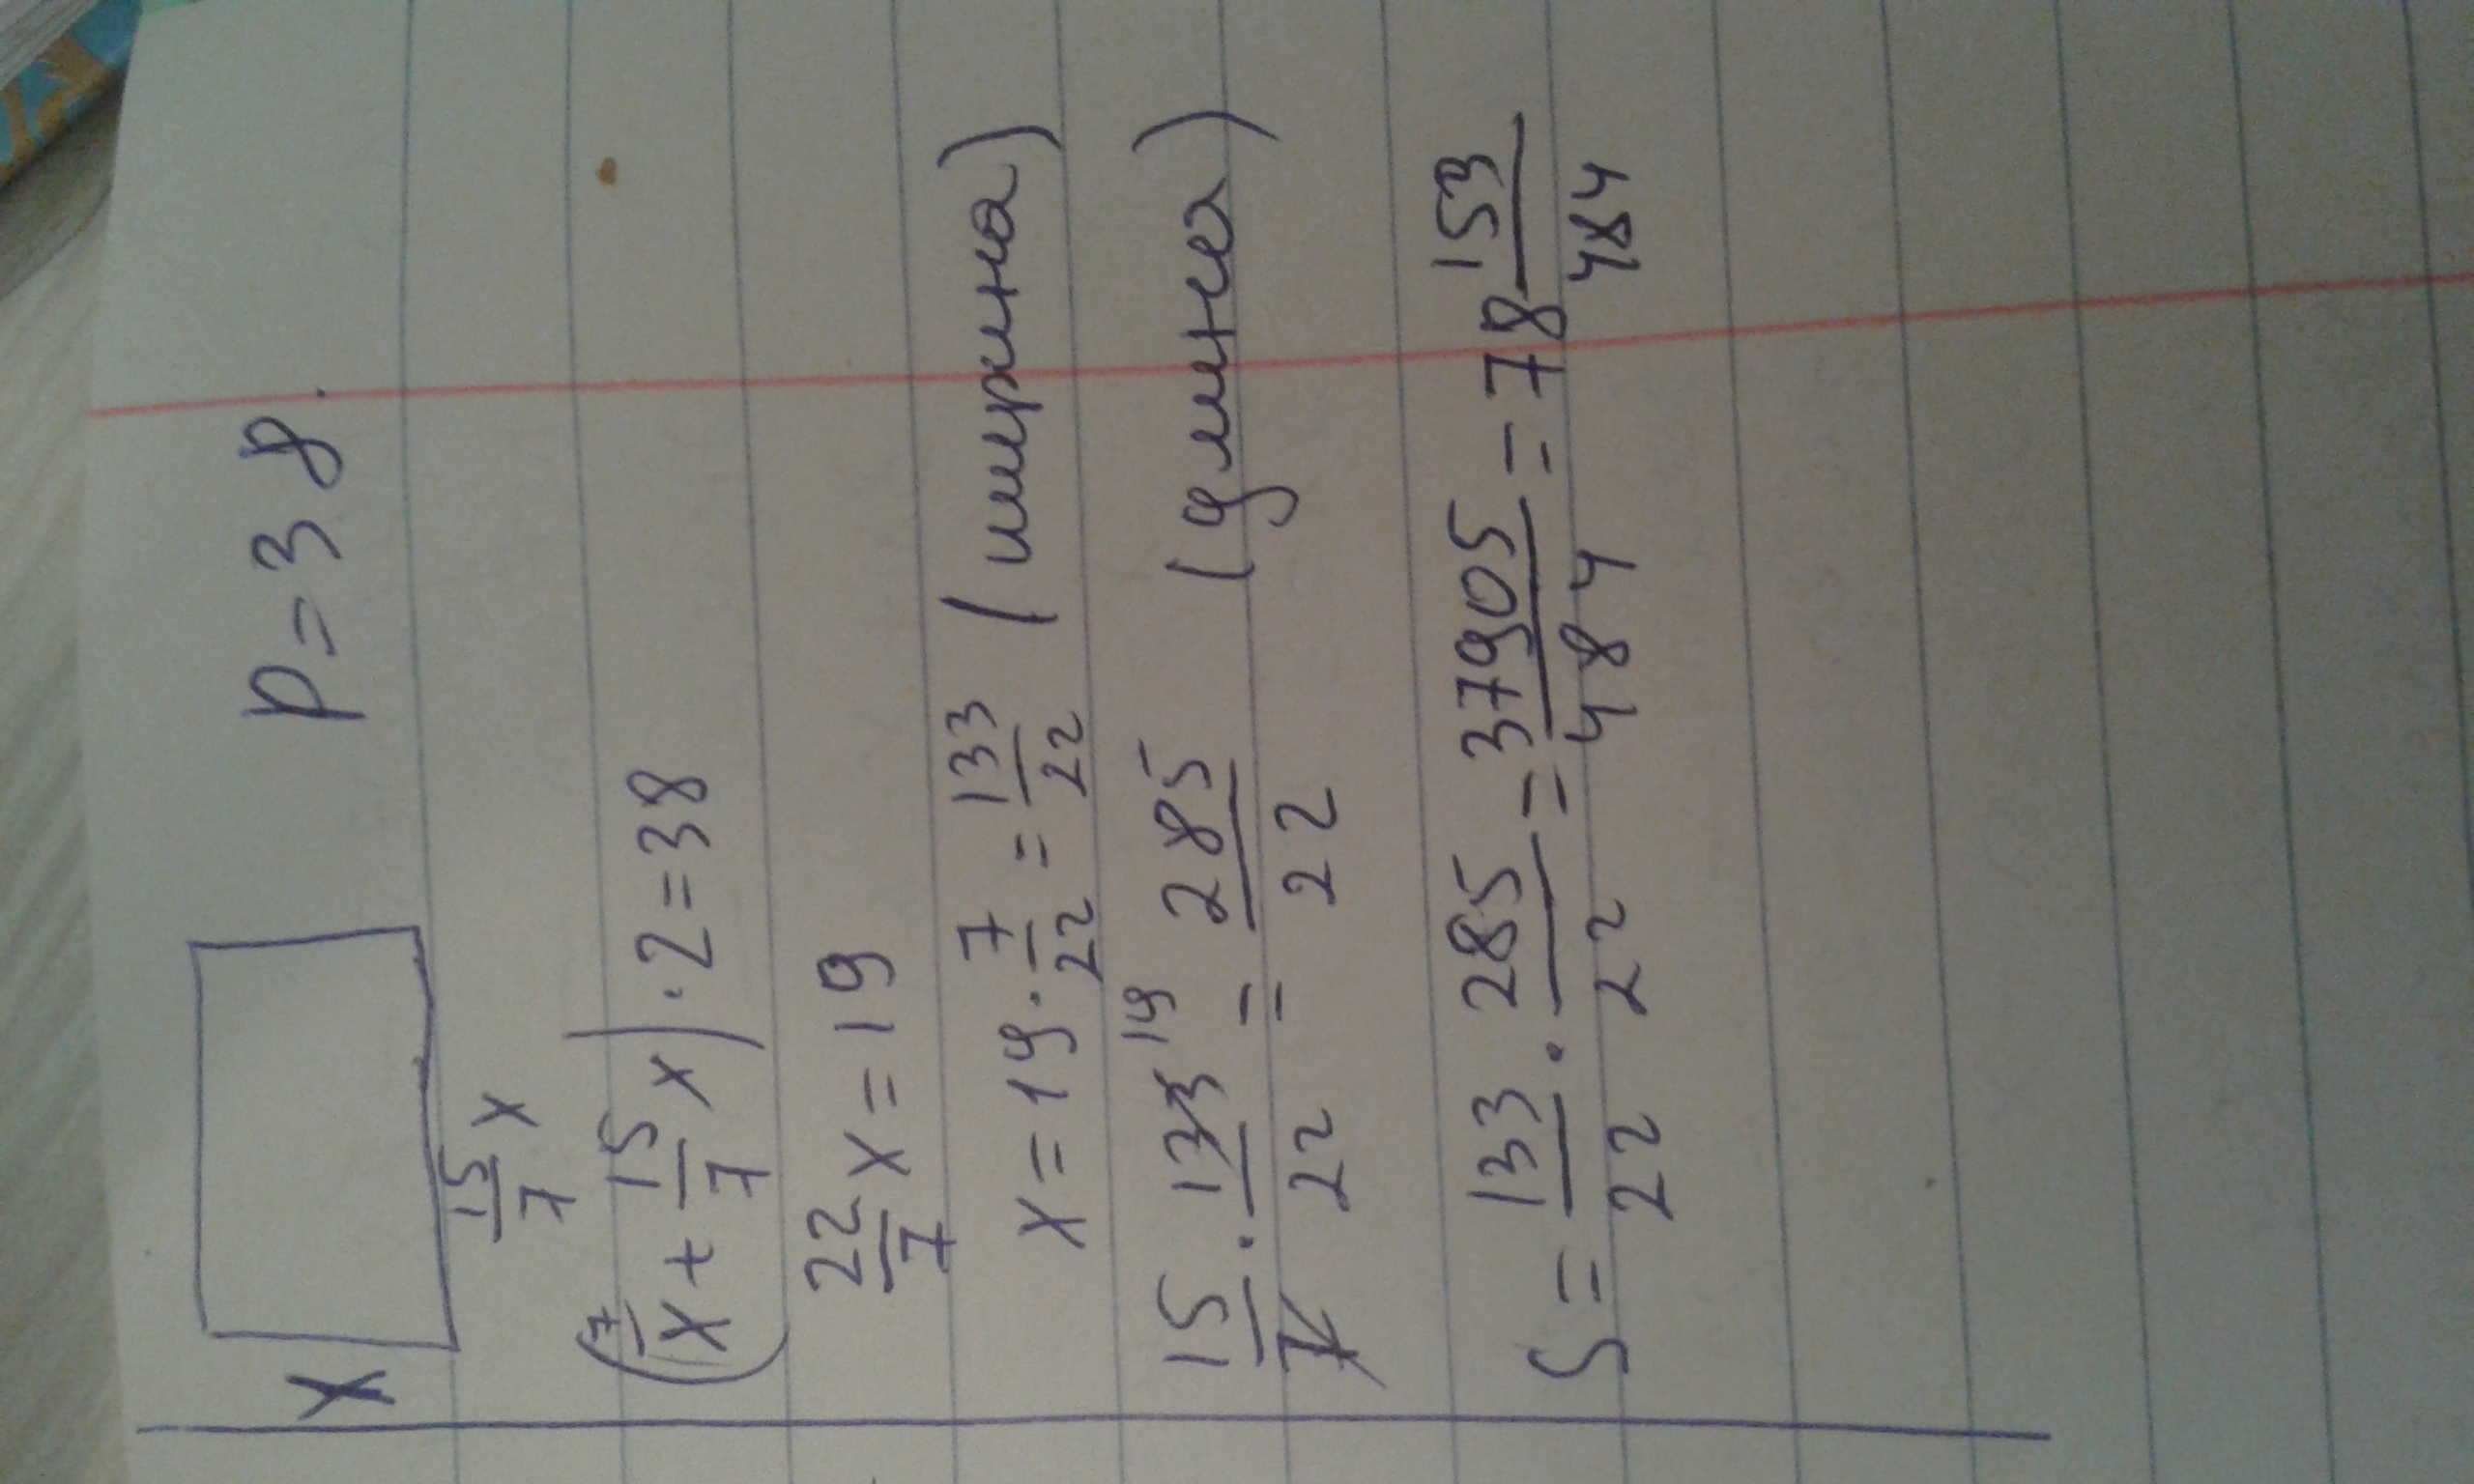 x P = 38.
15/7 x
(x + 15/7 x) · 2 = 38
22/7 x = 19
x = 19 · 7/22 = 133/22 (ширина)
15/7 · 133/22 19 = 285/22 (длина)
S = 133/22 · 285/22 = 37905/484 = 78 153/484